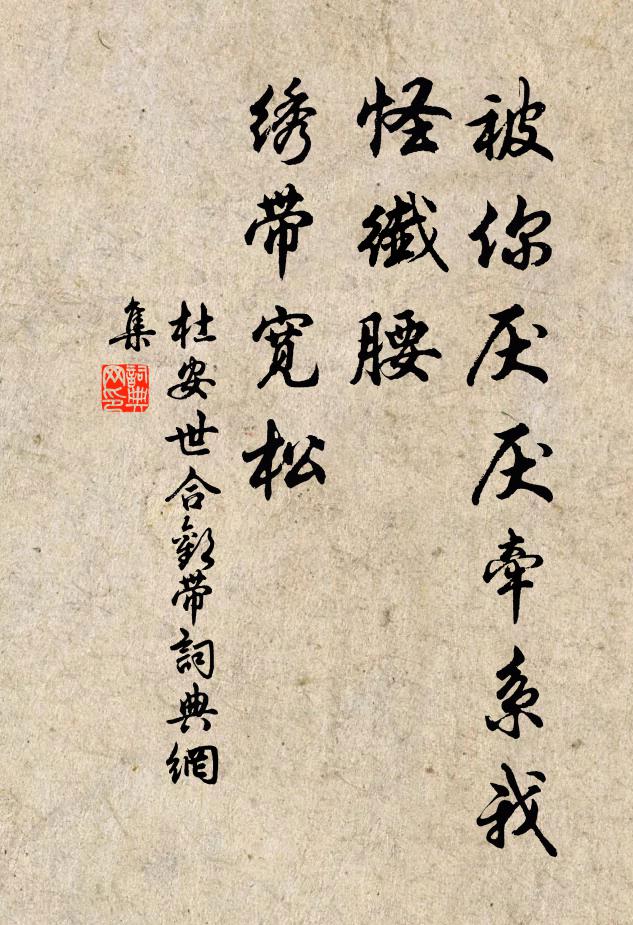 被你厌厌牵系我
怪纖腰
绣带寬松
杜安世合歡带詞典網
集
詞典
网印